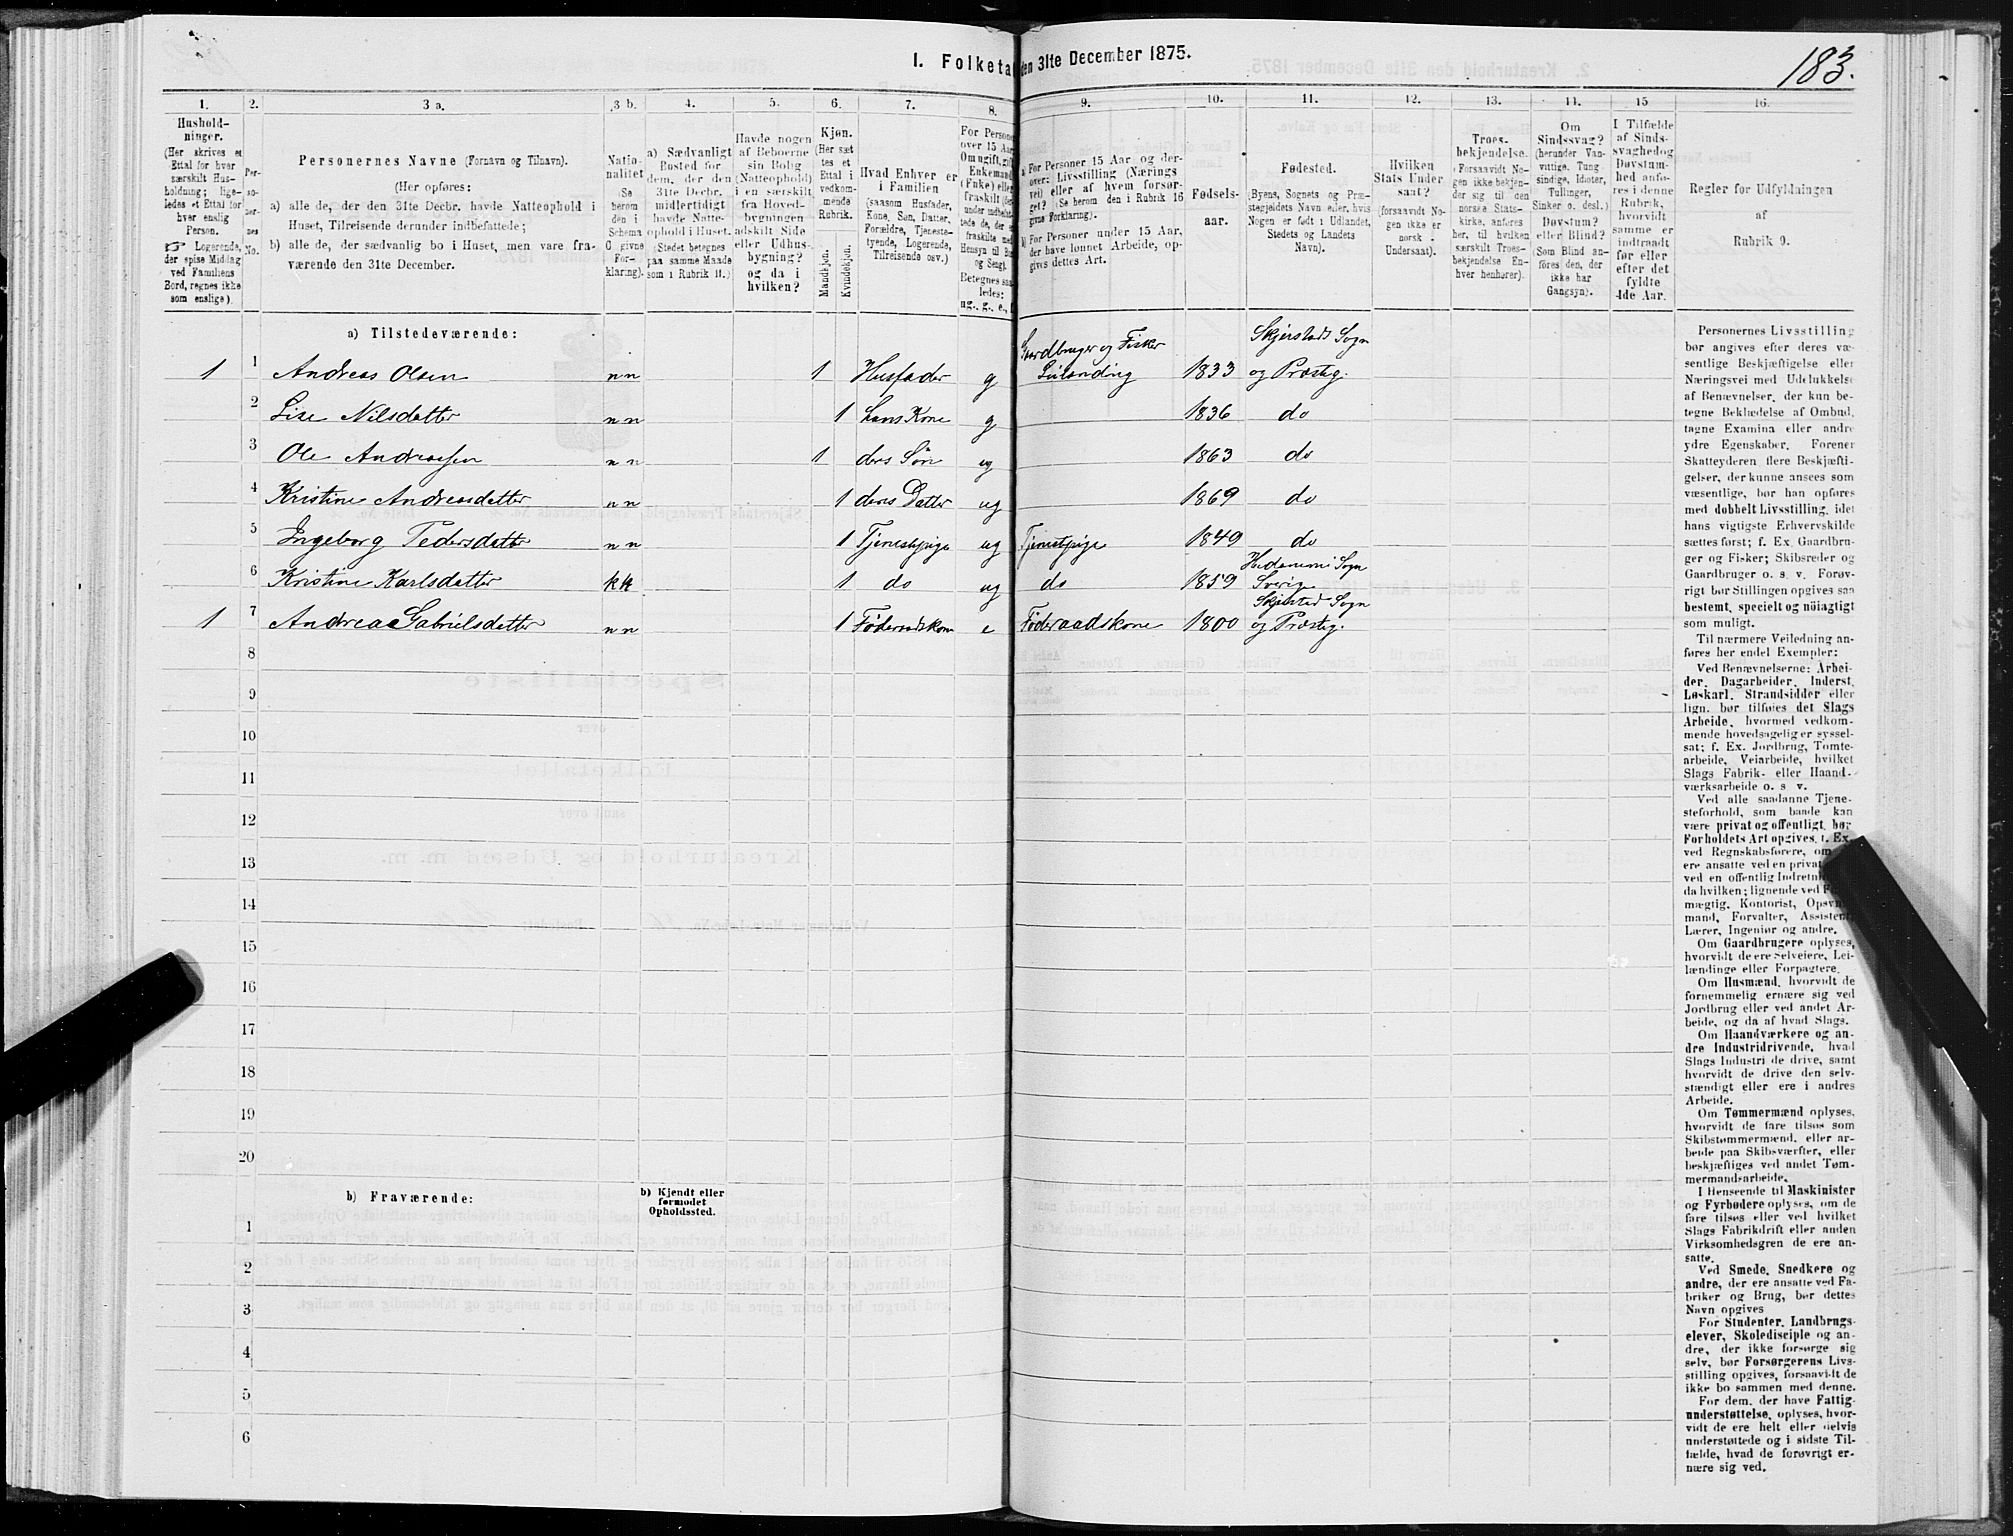 183.
I. Folketa den 31te December 1875.
1. 2. 3 a. 3 b. 4. 5. 6. 7. 8. 9. 10. 11. 12. 13. 14. 15 16.
Hushold-
ninger.
(Her skrives et
Ettal for hver
særskilt Hus-
holdning; lige-
ledes et Ettal for
hver enslig
Person.
☞ Logerende,
der spise Middag
ved Familiens
Bord, regnes ikke
som enslige).
Per-
so-
ner-
nes
No.
Personernes Navne (Fornavn og Tilnavn).
(Her opføres:
a) alle de, der den 31te Decbr. havde Natteophold i
Huset, Tilreisende derunder indbefattede;
b) alle de, der sædvanlig bo i Huset, men vare fra-
værende den 31te December.
Natio-
nalitet
(Se
herom
den i
Schema
C givne
For-
klaring).
a) Sædvanligt
Bosted for
dem, der den
31te Decbr.
midlertidigt
havde Natte-
ophold i Huset.
(Stedet betegnes
paa samme Maade
som i Rubrik 11.)
Havde nogen
af Beboerne
sin Bolig
(Natteophold)
i en særskilt
fra Hoved-
bygningen
adskilt Side
eller Udhus-
bygning?
og da i
hvilken?
Kjøn.
(Her sæt
tes et
Ettal i
vedkom-
mende
Rubrik.
Mandkjøn.
Kvindekjøn.
Hvad Enhver er
i Familien
(saasom Husfader,
Kone, Søn, Datter,
Forældre, Tjeneste-
tyende, Logerende,
Tilreisende osv.)
For Persone
over 15 Aar
Om ugift, gift,
Enkemand
(Enke) eller
fraskilt
Betegnes saa-
ledes:
ug., g., e., f
a) For Personer 15 Aar og der-
over: Livsstilling (Nærings
vei) eller af hvem forsør-
get? (Se herom den i Rubrik 16
givne Forklaring).
b) For Personer under 15 Aar,
der have lønnet Arbeide, op-
gives dettes Art.
Fødsels-
aar.
Fødested.
(Byens, Sognets og Præ-
stegjeldets Navn eller, hvis
Nogen er født i Udlandet,
Stedets og Landets
Navn).
Hvilken
Stats Under
saat?
(forsaavidt No-
gen ikke er
norsk
Undersaat).
Troes-
bekjendelse.
(Forsaavidt No-
gen ikke bekjen-
der sig til den
norske Stats-
kirke, anføres
her, til hvilken
særskilt Troes-
bekjendelse En-
hver henhører).
Om
Sindssvag?
(herunder Van-
vittige, Tung-
sindige, Idioter,
Tullinger,
Sinker o. desl.)
Døvstum?
eller Blind?
(Som Blind an-
føres den, der
ikke har
Gangsyn).
I Tilfælde
af Sinds-
svaghed og
Døvstum-
hed anfø-
res i denne
Rubrik,
hvorvidt
samme er
indtraadt
før eller
efter det
fyldte
4de Aar.
Regler for Udfyldningen
af
Rubrik 9.
a) Tilstedeværende:
1 1 Andreas Olsen nn 1 Husfader g Gaardbruger og Fisker Leilænding 1833 Skjerstads Sogn og Præstg.
2 Lise Nilsdatter nn 1 hans Kone g 1836 do
3 Ole Andreassen nn 1 ders Søn ug 1863 do
4 Kristine Andreasdatter nn 1 deres Datter ug 1869 do
5 Ingeborg Pedersdatter nn 1 Tjenestpige ug Tjenestpige 1849 do
6 Kristine Karlsdatter kk 1 do ug do 1859 Sogn Sverig
1 7 Andrea Gabrielsdatter nn 1 Føderaadskone e Føderaadskone 1800 Skjerstad Sogn og Præstg.
8
9
10
11
12
13
14
15
16
17
18
19
20
b) Fraværende:
b) Kjendt eller
formodet
Opholdssted.
1
2
3
4
5
6
Personernes Livsstilling
bør angives efter deres væ-
sentlige Beskjæftigelse eller
Næringsvei med Udelukkelse
af Benævnelser, der kun be-
tegne Beklædelse af Ombud,
tagne Examina eller andre
ydre Egenskaber. Forener
Skatteyderen flere Beskjæfti-
gelser, der kunne ansees som
væsentlige, bør han opføres
med dobbelt Livsstilling, idet
hans vigtigste Erhvervskilde
sættes først; f. Ex. Gaardbru-
ger og Fisker; Skibsreder og
Gaardbruger o. s. v. Forøv-
rigt bør Stillingen opgives saa
bestemt, specielt og nøiagtigt
som muligt.
Til nærmere Veiledning an-
føres her endel Exempler:
Ved Benævnelserne: Arbei-
der, Dagarbeider, Inderst,
Løskarl, Strandsidder eller
lign. bør tilføies det Slags
Arbeide, hvormed vedkom-
mende hovedsagelig er syssel-
sat; f. Ex. Jordbrug, Tomte-
arbeide, Veiarbeide, hvilket
Slags Fabrik- eller Haand-
værksarbeide o. s. v.
Ved alle saadanne Tjene-
steforhold, som baade kan
være privat og offentligt, bør
Forholdets Art opgives, t. Ex.
ved Regnskabsførere, om
ere ansatte ved en privat
ved en offentlig Indretn
da hvilken; lignende ved
mægtig, Kontorist, Opsyn
mand, Forvalter, Assistent,
Lærer, Ingeniør og andre.
Om Gaardbrugere oplyses,
hvorvidt de ere Selveiere, Lei-
lændinge eller Forpagtere.
Om Husmænd, hvorvidt de
fornemmelig ernære sig ved
Jordbrug eller ved andet Ar-
beide, og da af hvad Slags.
Om Haandværkere og an-
dre Industridrivende, hvad
Slags Industri de drive, samt
hvorvidt de drive den selv-
stændigt eller ere i andres
Arbeide.
Om Tømmermænd oplyses,
hvorvidt de fare tilsøs som
Skibstømmermænd, eller ar-
beide paa Skibsværfter, eller
beskjæftiges ved andet Tøm-
mermandsarbeide.
I Henseende til Maskinister
og Fyrbødere oplyses, om de
fare tilsøs eller ved hvilket
Slags Fabrikdrift eller anden
Virksomhedsgren de ere an-
satte.
Ved Smede, Snedkere og
andre, der ere ansatte ved Fa-
briker og Brug, bør dettes
Navn opgives
For Studenter, Landbrugs-
elever, Skoledisciple og an-
dre, der ikke forsørge sig
selv, bør Forsørgerens Livs-
stilling opgives, forsaavidt de
ikke bo sammen med denne.
For dem, der have Fattig-
understøttelse, oplyses, hvor-
vidt de ere helt eller delvis
understøttede og i sidste Til-
fælde, hvad de forøvrigt er-
nære sig ved.